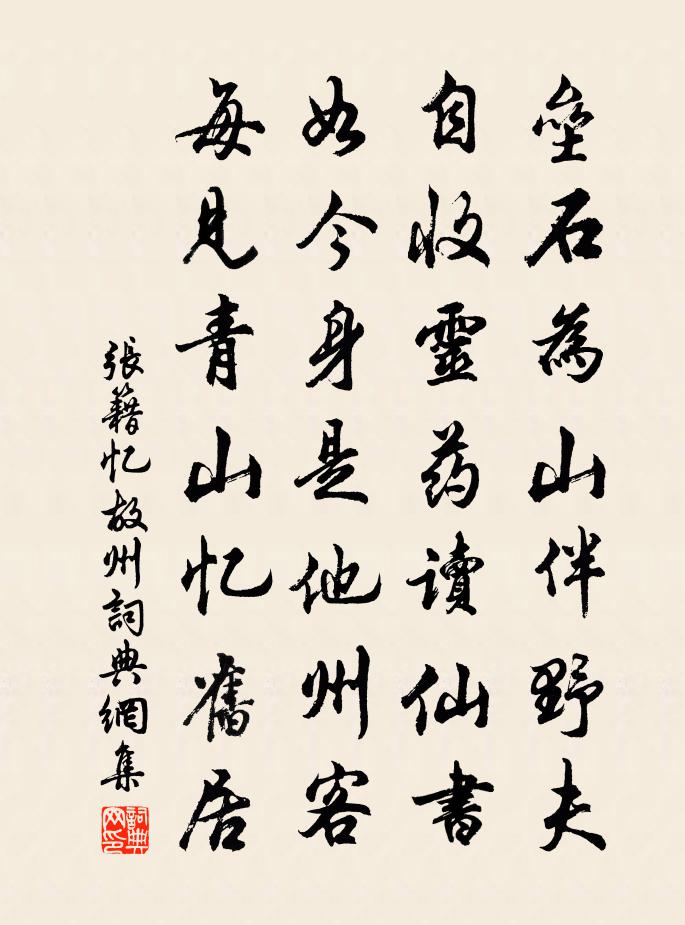 垒石為山伴野夫
自收靈药讀仙書
如今身是他州客
每見青山忆舊居
張籍忆故州詞典網集
詞典網印